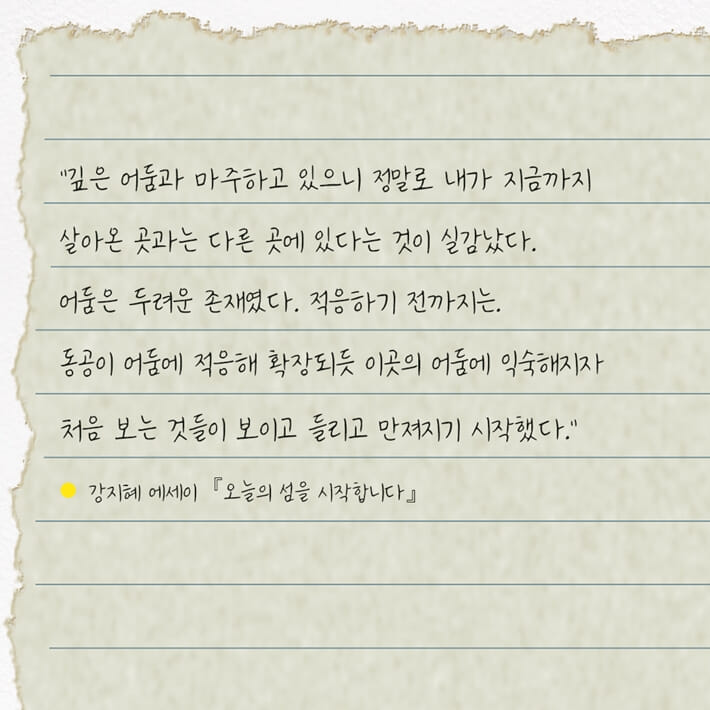 "깊은 어둠과 마주하고 있으니 정말로 내가 지금까지
살아온 곳과는 다른 곳에 있다는 것이 실감났다.
어둠은 두려운 존재였다. 적응하기 전까지는.
동공이 어둠에 적응해 확장되듯 이곳의 어둠에 익숙해지자
처음 보는 것들이 보이고 들리고 만져지기 시작했다."
강지혜 에세이 『오늘의 섬을 시작합니다』